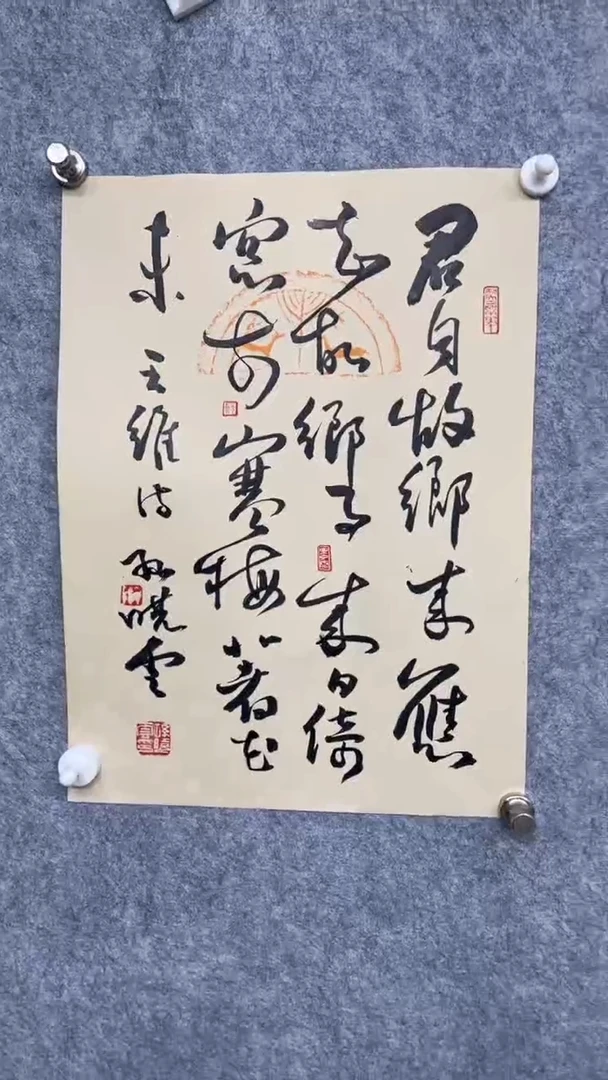 君自故鄉来應
知故鄉事来日綺
窓前寒梅著花
未 王維诗 孫曉雲